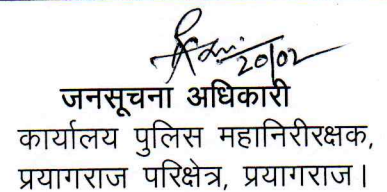 20/02
जनसूचना अधिकारी
कार्यालय पुलिस महानिरीरक्षक,
प्रयागराज परिक्षेत्र, प्रयागराज।